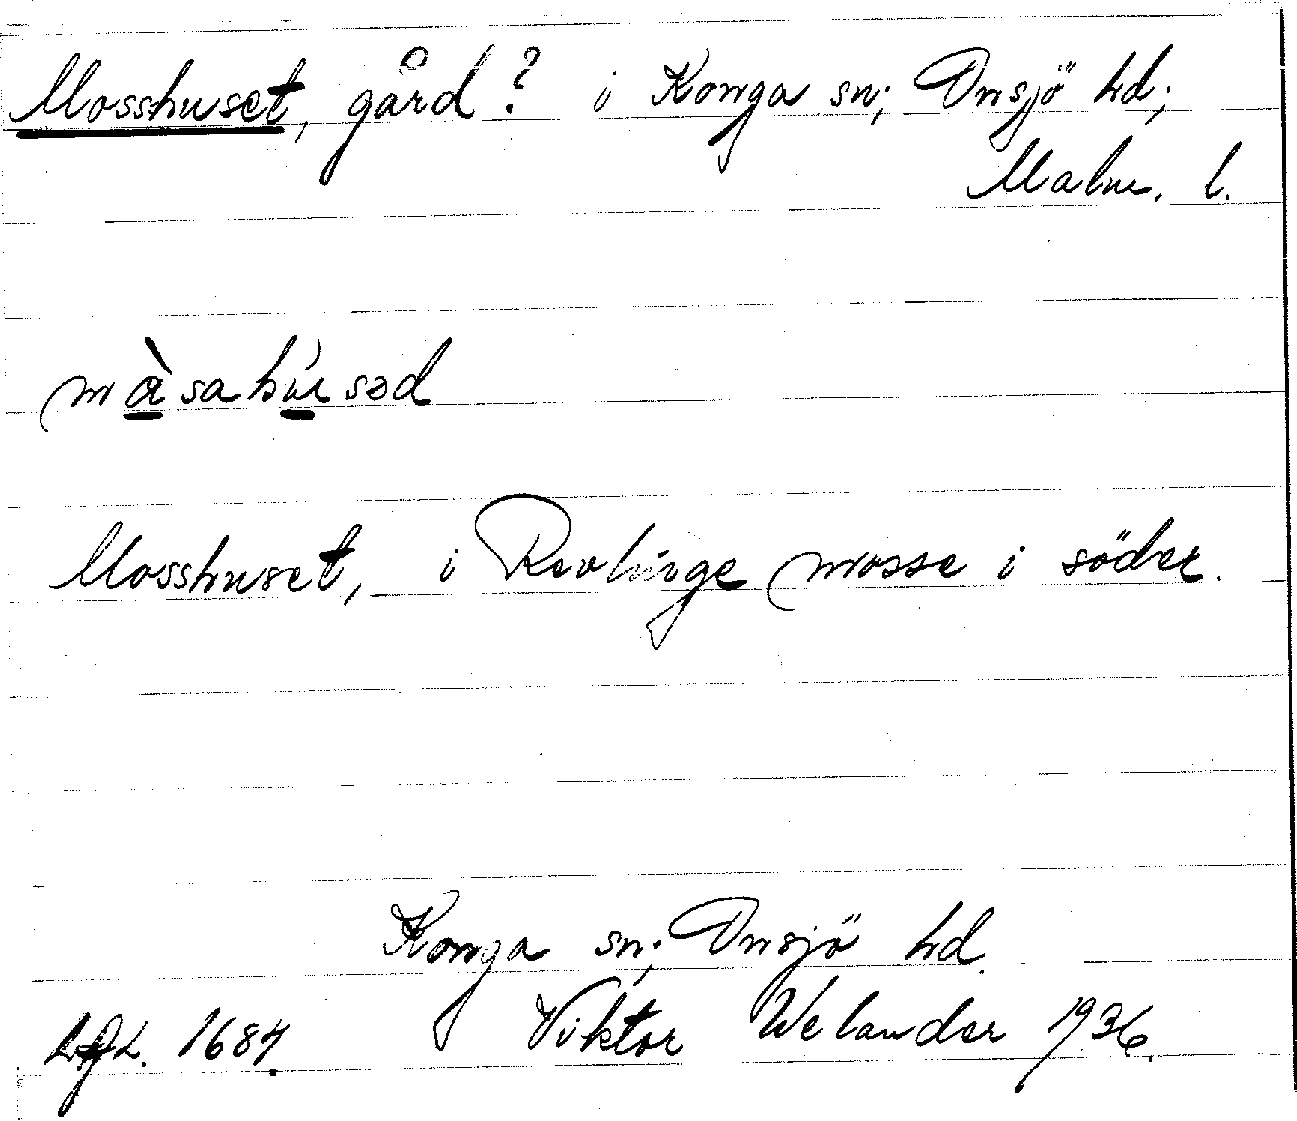 Mosshuset, gård? i Konga sn; Onsjö hd;
Malm. l.
màsahúsəd
Mosshuset, i Revlinge mosse i söder.
Konga sn; Onsjö hd.
1684. Viktor Welander 1936.